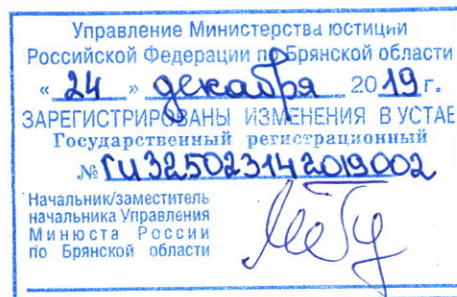 Управление Министерства юстиции
Российской Федерации по Брянской области
« 24 » декабря 2019 г.
ЗАРЕГИСТРИРОВАНЫ ИЗМЕНЕНИЯ В УСТАВ
Государственный регистрационный
№ RU 325023142019002
Начальник/заместитель
начальника Управления
Минюста России
по Брянской области